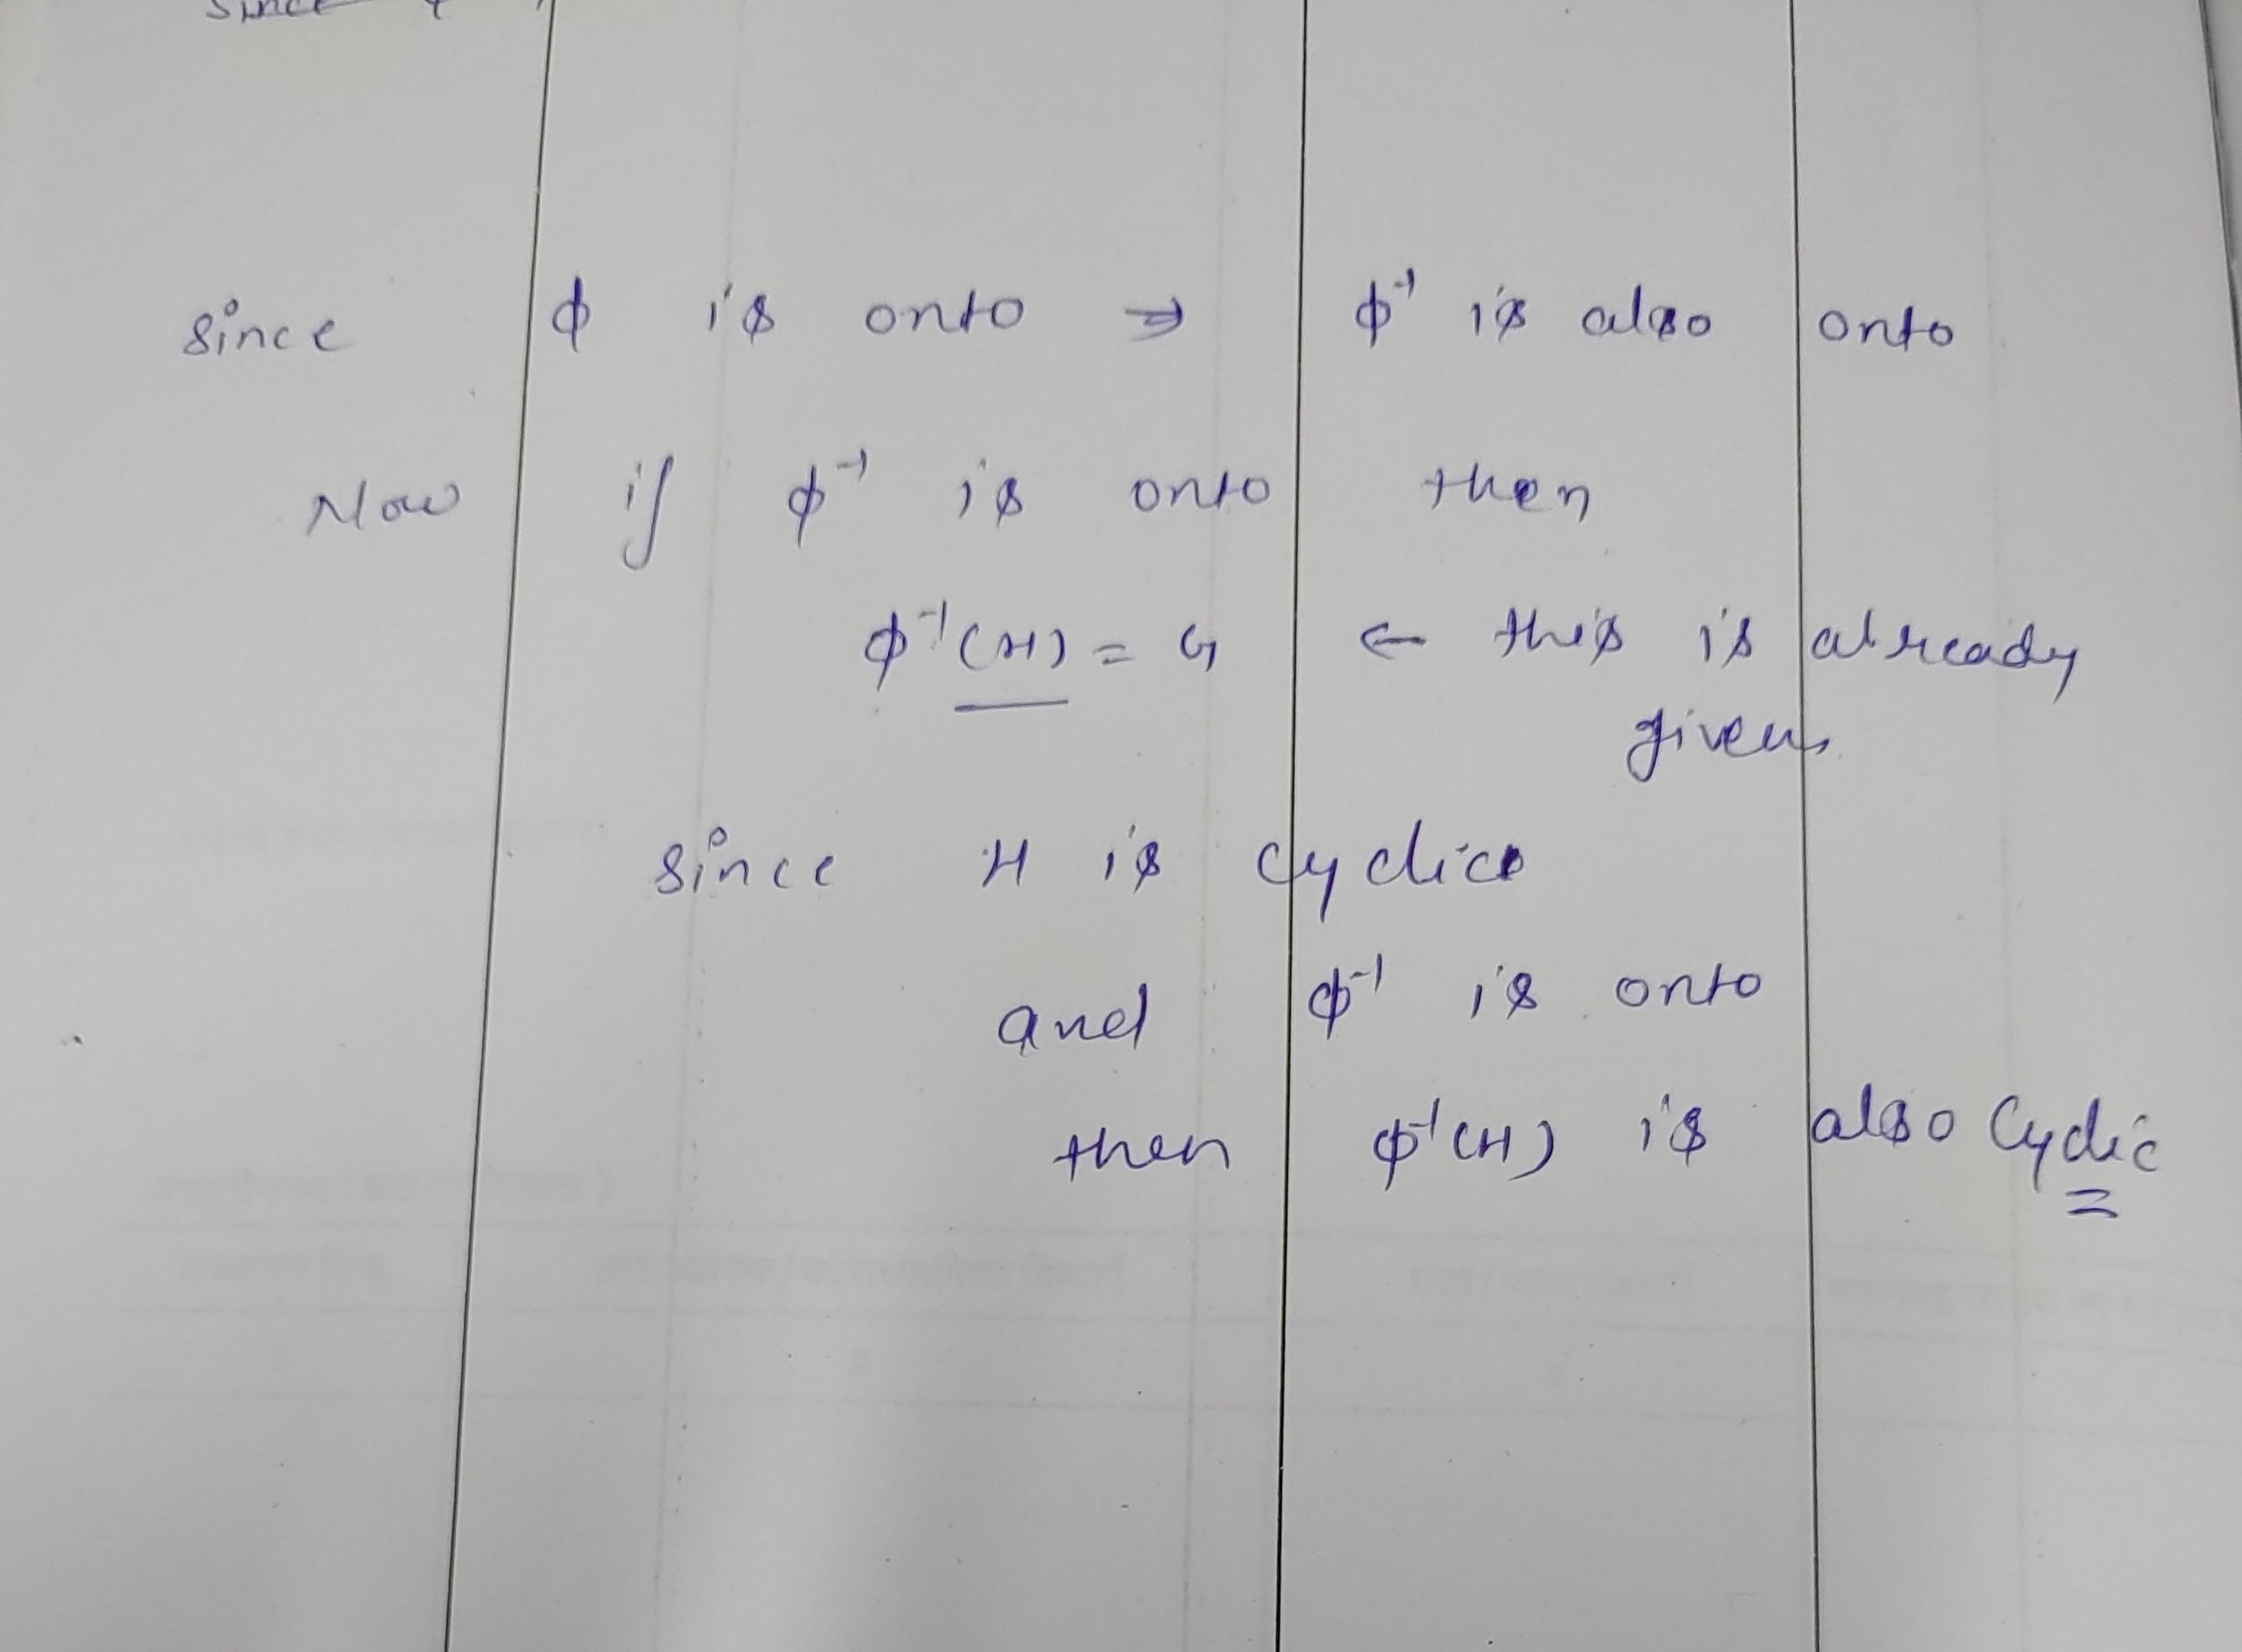 since
since ϕ is onto ⇒ ϕ⁻¹ is also onto
Now if ϕ⁻¹ is onto then
ϕ⁻¹(H) = G ← this is already
given
since H is cyclic
and ϕ⁻¹ is onto
then ϕ⁻¹(H) is also cyclic